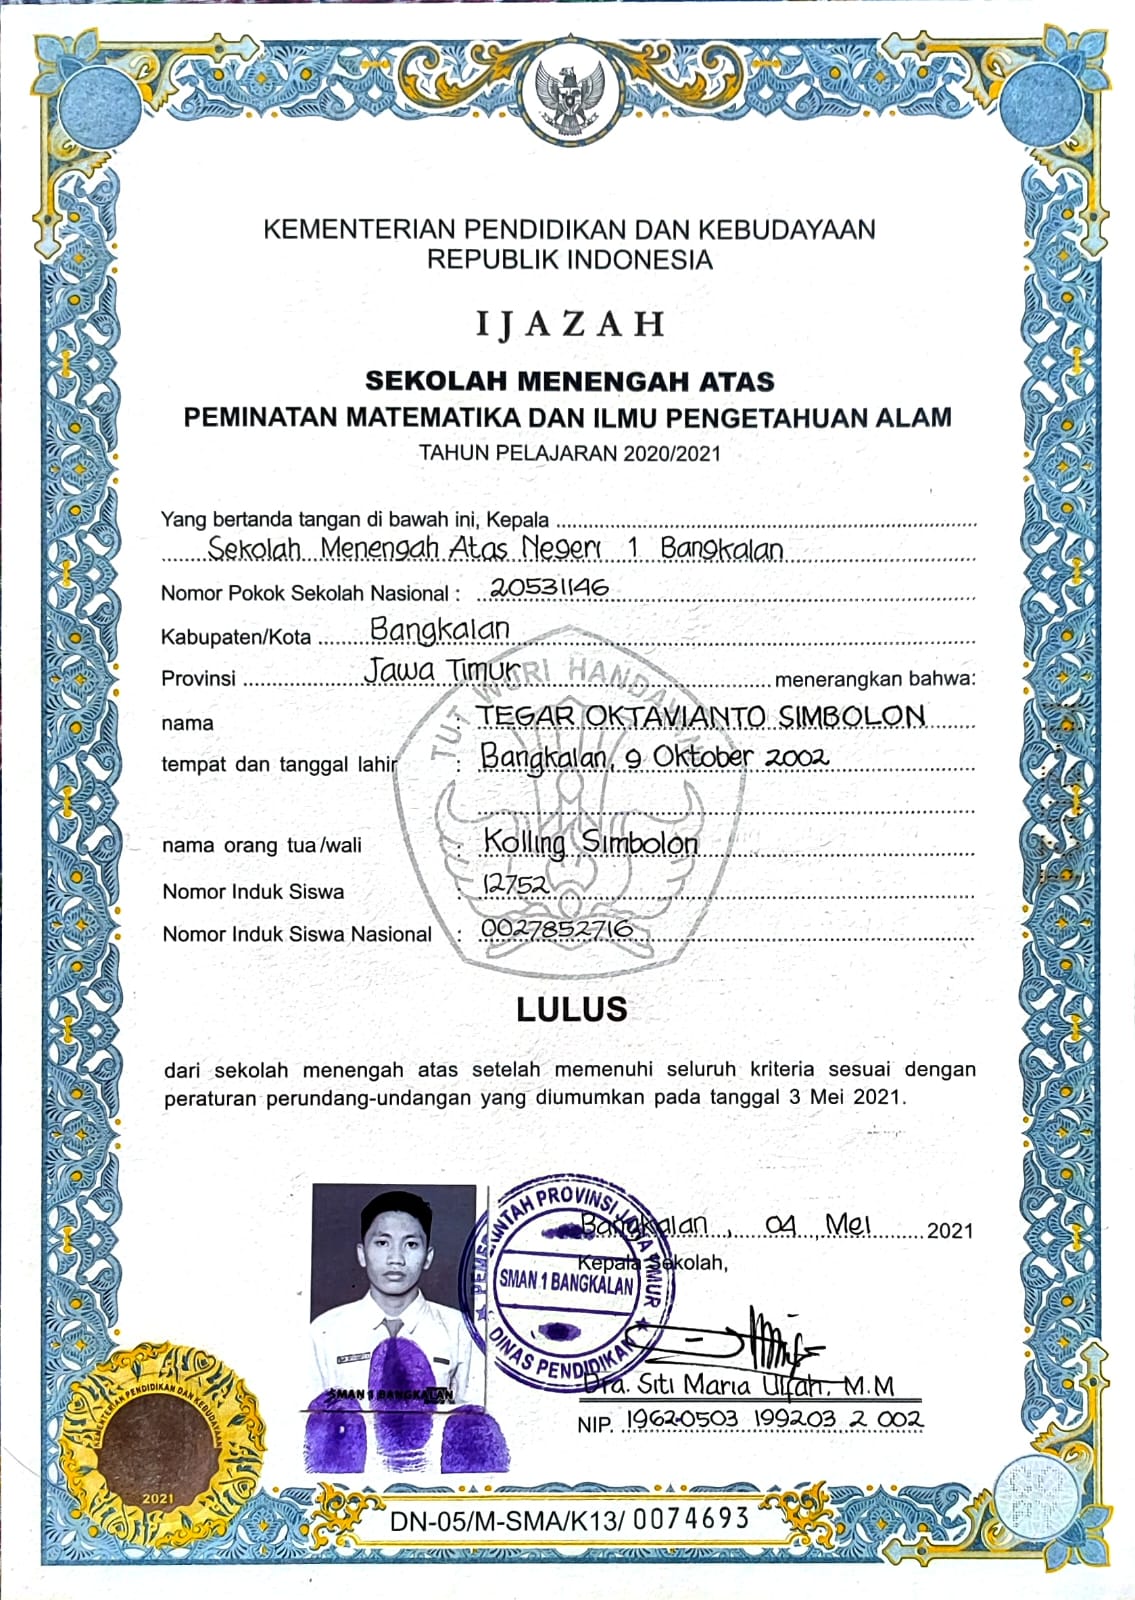 KEMENTERIAN PENDIDIKAN DAN KEBUDAYAAN
REPUBLIK INDONESIA
IJAZAH
SEKOLAH MENENGAH ATAS
PEMINATAN MATEMATIKA DAN ILMU PENGETAHUAN ALAM
TAHUN PELAJARAN 2020/2021
Yang bertanda tangan di bawah ini, Kepala
Sekolah Menengah Atas Negeri 1 Bangkalan
Nomor Pokok Sekolah Nasional : 20531146
Kabupaten/Kota Bangkalan
Provinsi Jawa Timur menerangkan bahwa:
nama : TEGAR OKTAVIANTO SIMBOLON
tempat dan tanggal lahir : Bangkalan, 9 Oktober 2002
nama orang tua/wali : Kolling Simbolon
Nomor Induk Siswa : 12752
Nomor Induk Siswa Nasional : 0027852716
TUT WURI HANDAYANI
LULUS
dari sekolah menengah atas setelah memenuhi seluruh kriteria sesuai dengan
peraturan perundang-undangan yang diumumkan pada tanggal 3 Mei 2021.
Bangkalan, 04 Mei 2021
Kepala Sekolah,
PEMERINTAH PROVINSI JAWA TIMUR
SMAN 1 BANGKALAN
DINAS PENDIDIKAN
SMAN 1 BANGKALAN
Dra. Siti Maria Ulfah, M.M
NIP. 19620503 199203 2 002
KEMENTERIAN PENDIDIKAN DAN KEBUDAYAAN
2021
DN-05/M-SMA/K13/ 0074693